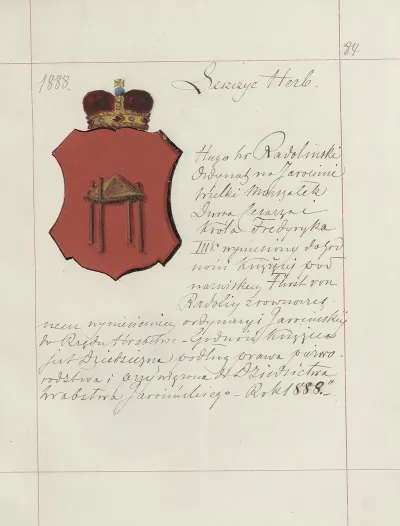 84
1888. Leszczyc Herb.
Hugo hr Radoliński
Ordynat na Jarocinie
Wielki Marszałek
Dwora Cesarza i
Króla Fredryka
III. wyniesiony do god
ności Książęcej pod
nazwiskiem Fürst von
Radolin z równoczes
nem wyniesieniem ordynacyi Jarocińskiej
do Rzędu Hrabstw. Godność Książęca
jest Dziedziczna według prawa pierwo-
rodztwa i przywiązana do Dziedzictwa
hrabstwa Jarocińskiego - Rok 1888."